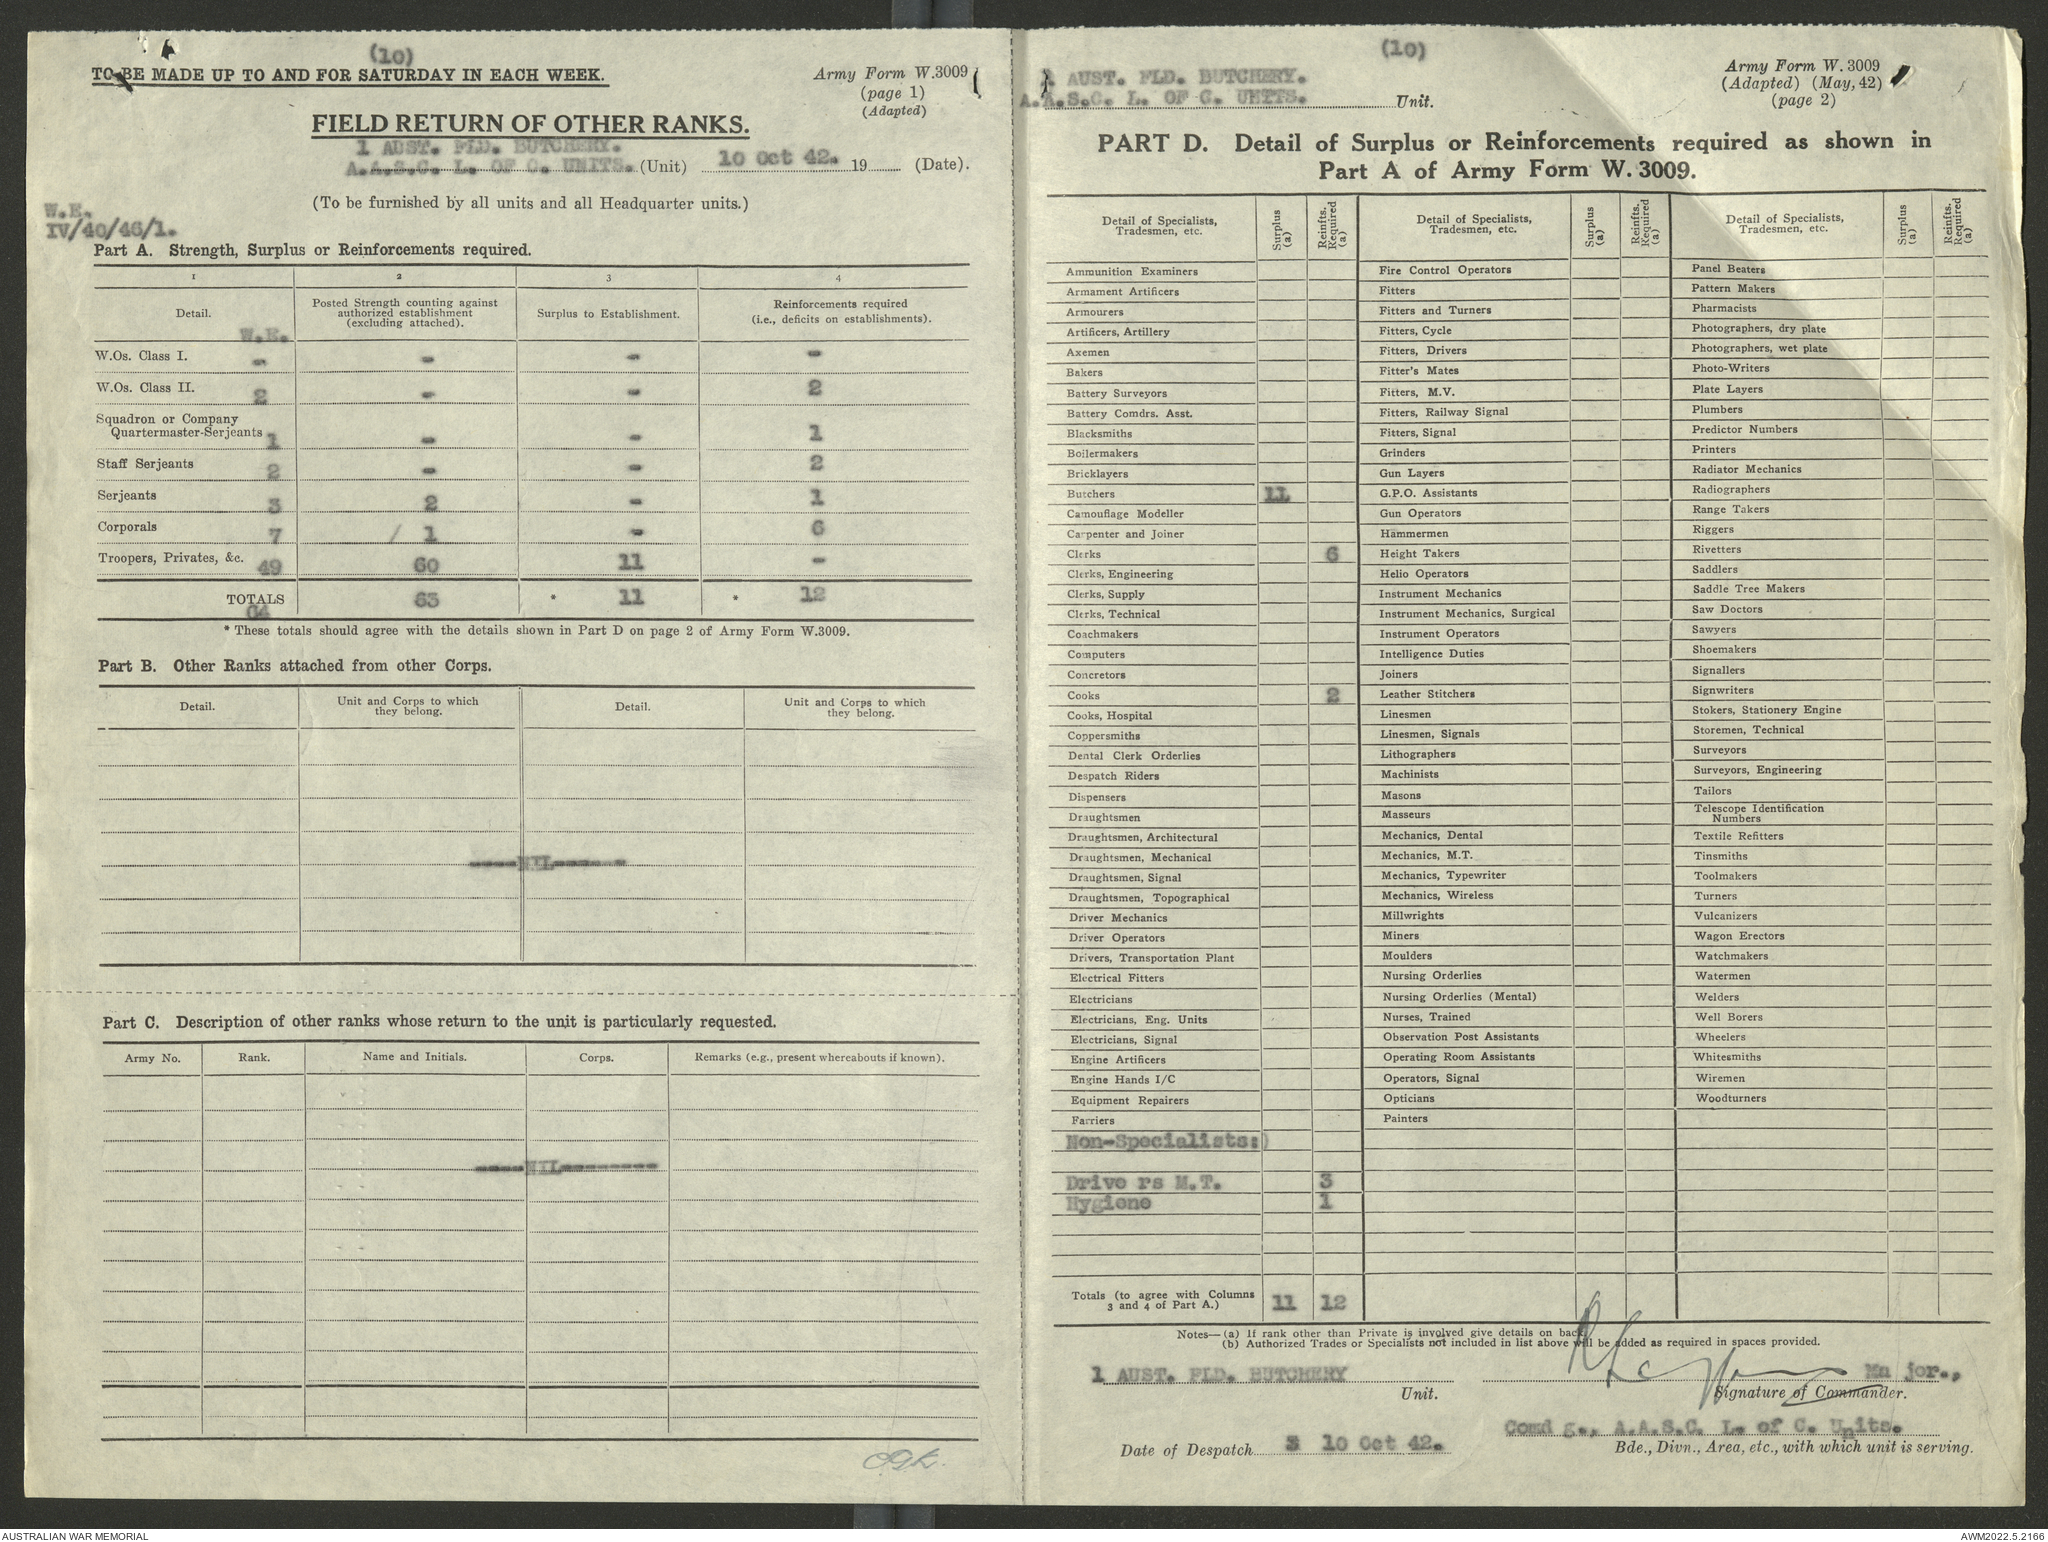 (10)
TO BE MADE UP TO AND FOR SATURDAY IN EACH WEEK.
Army Form W.3009
(page 1)
(Adapted)
FIELD RETURN OF OTHER RANKS.
1 AUST. FLD. BUTCHERY.
A.A.S.C. L. OF C. UNITS. (Unit) 10 Oct 42. 19 (Date).
(To be furnished by all units and all Headquarter units.)
W.E.
IV/40/46/1.
Part A. Strength, Surplus or Reinforcements required.
1 2 3 4
Detail. W.E. Posted Strength counting against authorized establishment (excluding attached). Surplus to Establishment. Reinforcements required (i.e., deficits on establishments).
W.Os. Class I. - - - -
W.Os. Class II. 2 - - 2
Squadron or Company
Quartermaster-Serjeants 1 - - 1
Staff Serjeants 2 - - 2
Serjeants 3 2 - 1
Corporals 7 / 1 - 6
Troopers, Privates, &c. 49 60 11 -
TOTALS 64 63 * 11 * 12
* These totals should agree with the details shown in Part D on page 2 of Army Form W.3009.
Part B. Other Ranks attached from other Corps.
Detail. Unit and Corps to which they belong. Detail. Unit and Corps to which they belong.
----NIL------
Part C. Description of other ranks whose return to the unit is particularly requested.
Army No. Rank. Name and Initials. Corps. Remarks (e.g., present whereabouts if known).
----NIL--------
(10)
1 AUST. FLD. BUTCHERY.
A.A.S.C. L. OF C. UNITS. Unit.
Army Form W. 3009
(Adapted) (May, 42)
(page 2)
PART D. Detail of Surplus or Reinforcements required as shown in
Part A of Army Form W. 3009.
Detail of Specialists, Tradesmen, etc. Surplus (a) Reinfts. Required (a)
Ammunition Examiners
Armament Artificers
Armourers
Artificers, Artillery
Axemen
Bakers
Battery Surveyors
Battery Comdrs. Asst.
Blacksmiths
Boilermakers
Bricklayers
Butchers 11
Camouflage Modeller
Carpenter and Joiner
Clerks 6
Clerks, Engineering
Clerks, Supply
Clerks, Technical
Coachmakers
Computers
Concretors
Cooks 2
Cooks, Hospital
Coppersmiths
Dental Clerk Orderlies
Despatch Riders
Dispensers
Draughtsmen
Draughtsmen, Architectural
Draughtsmen, Mechanical
Draughtsmen, Signal
Draughtsmen, Topographical
Driver Mechanics
Driver Operators
Drivers, Transportation Plant
Electrical Fitters
Electricians
Electricians, Eng. Units
Electricians, Signal
Engine Artificers
Engine Hands I/C
Equipment Repairers
Farriers
Non-Specialists:)
Drive rs M.T. 3
Hygiene 1
Totals (to agree with Columns
3 and 4 of Part A.) 11 12
Detail of Specialists, Tradesmen, etc. Surplus (a) Reinfts. Required (a)
Fire Control Operators
Fitters
Fitters and Turners
Fitters, Cycle
Fitters, Drivers
Fitter's Mates
Fitters, M.V.
Fitters, Railway Signal
Fitters, Signal
Grinders
Gun Layers
G.P.O. Assistants
Gun Operators
Hammermen
Height Takers
Helio Operators
Instrument Mechanics
Instrument Mechanics, Surgical
Instrument Operators
Intelligence Duties
Joiners
Leather Stitchers
Linesmen
Linesmen, Signals
Lithographers
Machinists
Masons
Masseurs
Mechanics, Dental
Mechanics, M.T.
Mechanics, Typewriter
Mechanics, Wireless
Millwrights
Miners
Moulders
Nursing Orderlies
Nursing Orderlies (Mental)
Nurses, Trained
Observation Post Assistants
Operating Room Assistants
Operators, Signal
Opticians
Painters
Detail of Specialists, Tradesmen, etc. Surplus (a) Reinfts. Required (a)
Panel Beaters
Pattern Makers
Pharmacists
Photographers, dry plate
Photographers, wet plate
Photo-Writers
Plate Layers
Plumbers
Predictor Numbers
Printers
Radiator Mechanics
Radiographers
Range Takers
Riggers
Rivetters
Saddlers
Saddle Tree Makers
Saw Doctors
Sawyers
Shoemakers
Signallers
Signwriters
Stokers, Stationery Engine
Storemen, Technical
Surveyors
Surveyors, Engineering
Tailors
Telescope Identification
Numbers
Textile Refitters
Tinsmiths
Toolmakers
Turners
Vulcanizers
Wagon Erectors
Watchmakers
Watermen
Welders
Well Borers
Wheelers
Whitesmiths
Wiremen
Woodturners
Notes—(a) If rank other than Private is involved give details on back.
(b) Authorized Trades or Specialists not included in list above will be added as required in spaces provided.
1 AUST. FLD. BUTCHERY
Unit.
Ma jor.,
Signature of Commander.
Date of Despatch 10 Oct 42.
Comd g., A.A.S.C. L. of C. Units.
Bde., Divn., Area, etc., with which unit is serving.
AUSTRALIAN WAR MEMORIAL
AWM2022.5.2166